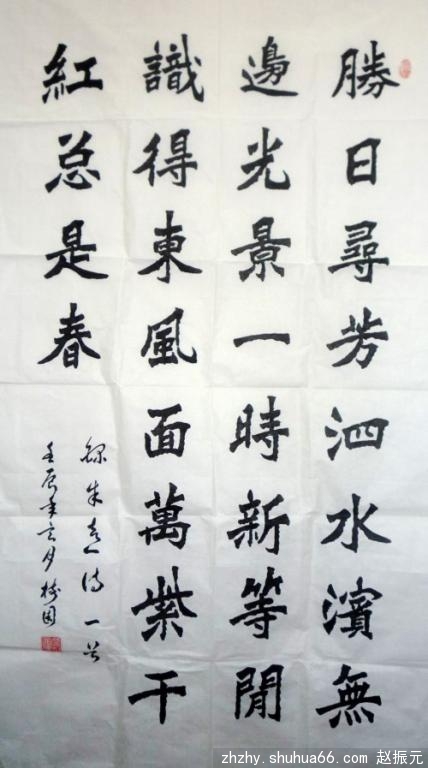 勝日尋芳泗水濱無
邊光景一時新等閒
識得東風面萬紫干
紅总是春
錄朱熹詩一首
壬辰年玄月樹园
zhzhy.shuhua66.com 赵振元